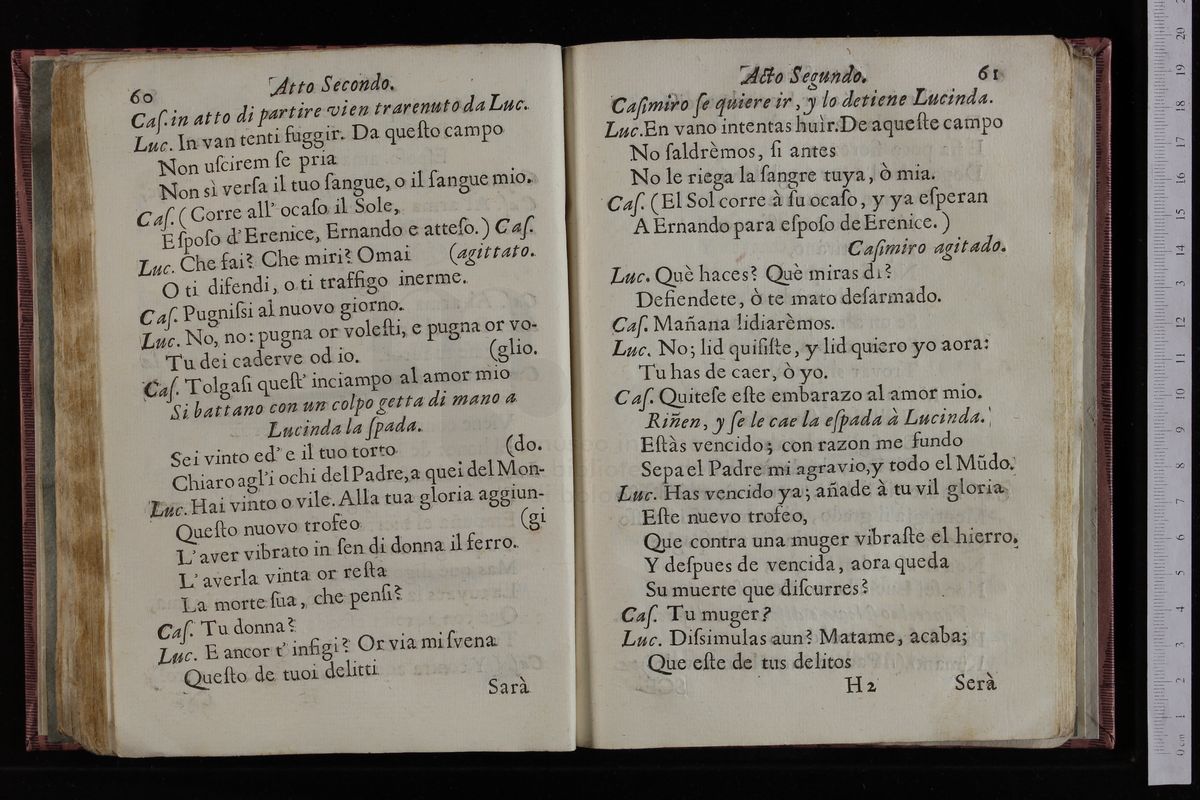 60 Atto Secondo.
Caſ. in atto di partire vien trarenuto da Luc.
Luc. In van tenti fuggir. Da queſto campo
Non uſcirem ſe pria
Non sì verſa il tuo ſangue, o il ſangue mio.
Caſ. (Corre all' ocaſo il Sole,
Eſpoſo d'Erenice, Ernando e atteſo.) Caſ.
Luc. Che fai? Che miri? Omai (agittato.
O ti difendi, o ti traffigo inerme.
Caſ. Pugniſsi al nuovo giorno.
Luc. No, no: pugna or voleſti, e pugna or vo-
Tu dei caderve od io. (glio.
Caſ. Tolgaſi queſt' inciampo al amor mio
Si battano con un colpo getta di mano a
Lucinda la ſpada.
Sei vinto ed' e il tuo torto (do.
Chiaro agl'i ochi del Padre, a quei del Mon-
Luc. Hai vinto o vile. Alla tua gloria aggiun-
Queſto nuovo trofeo (gi
L'aver vibrato in ſen di donna il ferro.
L'averla vinta or reſta
La morte ſua, che penſi?
Caſ. Tu donna?
Luc. E ancor t' infigi? Or via mi ſvena
Queſto de tuoi delitti
Sarà
Acto Segundo. 61
Caſimiro ſe quiere ir, y lo detiene Lucinda.
Luc. En vano intentas huìr. De aqueſte campo
No ſaldrèmos, ſi antes
No le riega la ſangre tuya, ò mia.
Caſ. (El Sol corre à ſu ocaſo, y ya eſperan
A Ernando para eſpoſo de Erenice.)
Caſimiro agitado.
Luc. Què haces? Què miras di?
Defiendete, ò te mato deſarmado.
Caſ. Mañana lidiarèmos.
Luc. No; lid quiſiſte, y lid quiero yo aora:
Tu has de caer, ò yo.
Caſ. Quiteſe eſte embarazo al amor mio.
Riñen, y ſe le cae la eſpada à Lucinda.
Eſtàs vencido; con razon me fundo
Sepa el Padre mi agravio, y todo el Mũdo.
Luc. Has vencido ya; añade à tu vil gloria
Eſte nuevo trofeo,
Que contra una muger vibraſte el hierro.
Y deſpues de vencida, aora queda
Su muerte que diſcurres?
Caſ. Tu muger?
Luc. Diſsimulas aun? Matame, acaba;
Que eſte de tus delitos
H 2 Serà